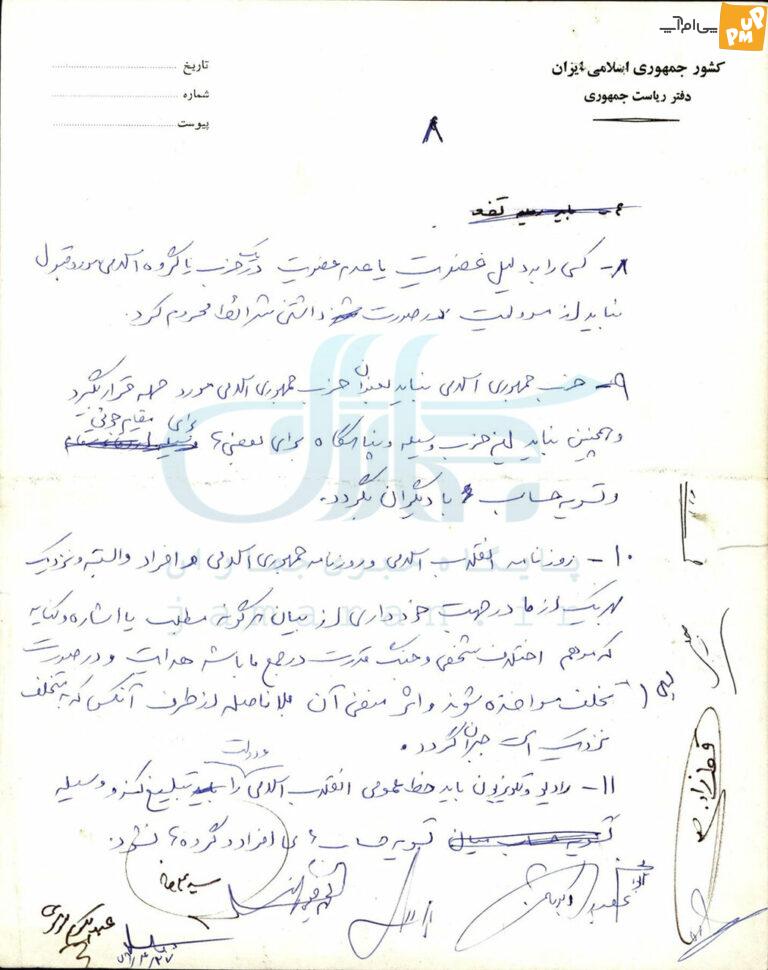 پی‌ام‌آپ
UP PM
کشور جمهوری اسلامی ایران
دفتر ریاست جمهوری
تاریخ
شماره
پیوست
۸
۸- کسی را به دلیل عضویت یا عدم عضویت در یک حزب یا گروه اسلامی مورد قبول
نباید از مسولیت در صورت داشتن شرائط محروم کرد.
۹- حزب جمهوری اسلامی نباید بعنوان حزب جمهوری اسلامی مورد حمله قرار بگیرد
و همچنین نباید این حزب وسیله و پناهگاه برای بعضی‌ها برای
و تسویه حساب با دیگران بگردد.
۱۰- روزنامه انقلاب اسلامی و روزنامه جمهوری اسلامی و افراد وابسته و نزدیک
هر یک از ما در جهت خودداری از بیان هرگونه مطلب یا اشاره و کنایه
که موهم اختلاف شخصی و جنگ قدرت در جمع ما باشد هدایت و در صورت
تخلف مواخذه شوند و اثر منفی آن بلافاصله از طرف آنکس که به متخلف
نزدیک است جبران گردد.
۱۱- رادیو و تلویزیون باید خط عمومی انقلاب اسلامی را تبلیغ کند و وسیله
تسویه حساب‌های افراد و گروه‌ها نشود.
قطب‌زاده
پایگاه خبری جماران
jamaran.ir